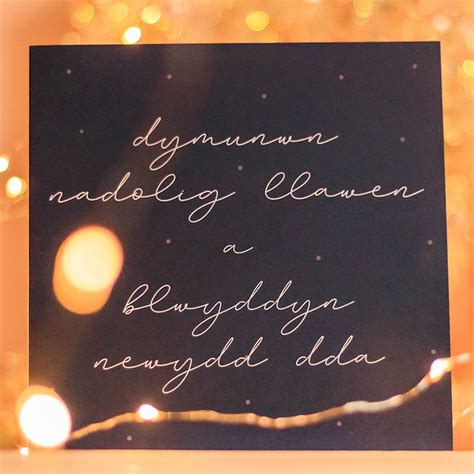 dymunwn
nadolig llawen
a
blwyddyn
newydd dda